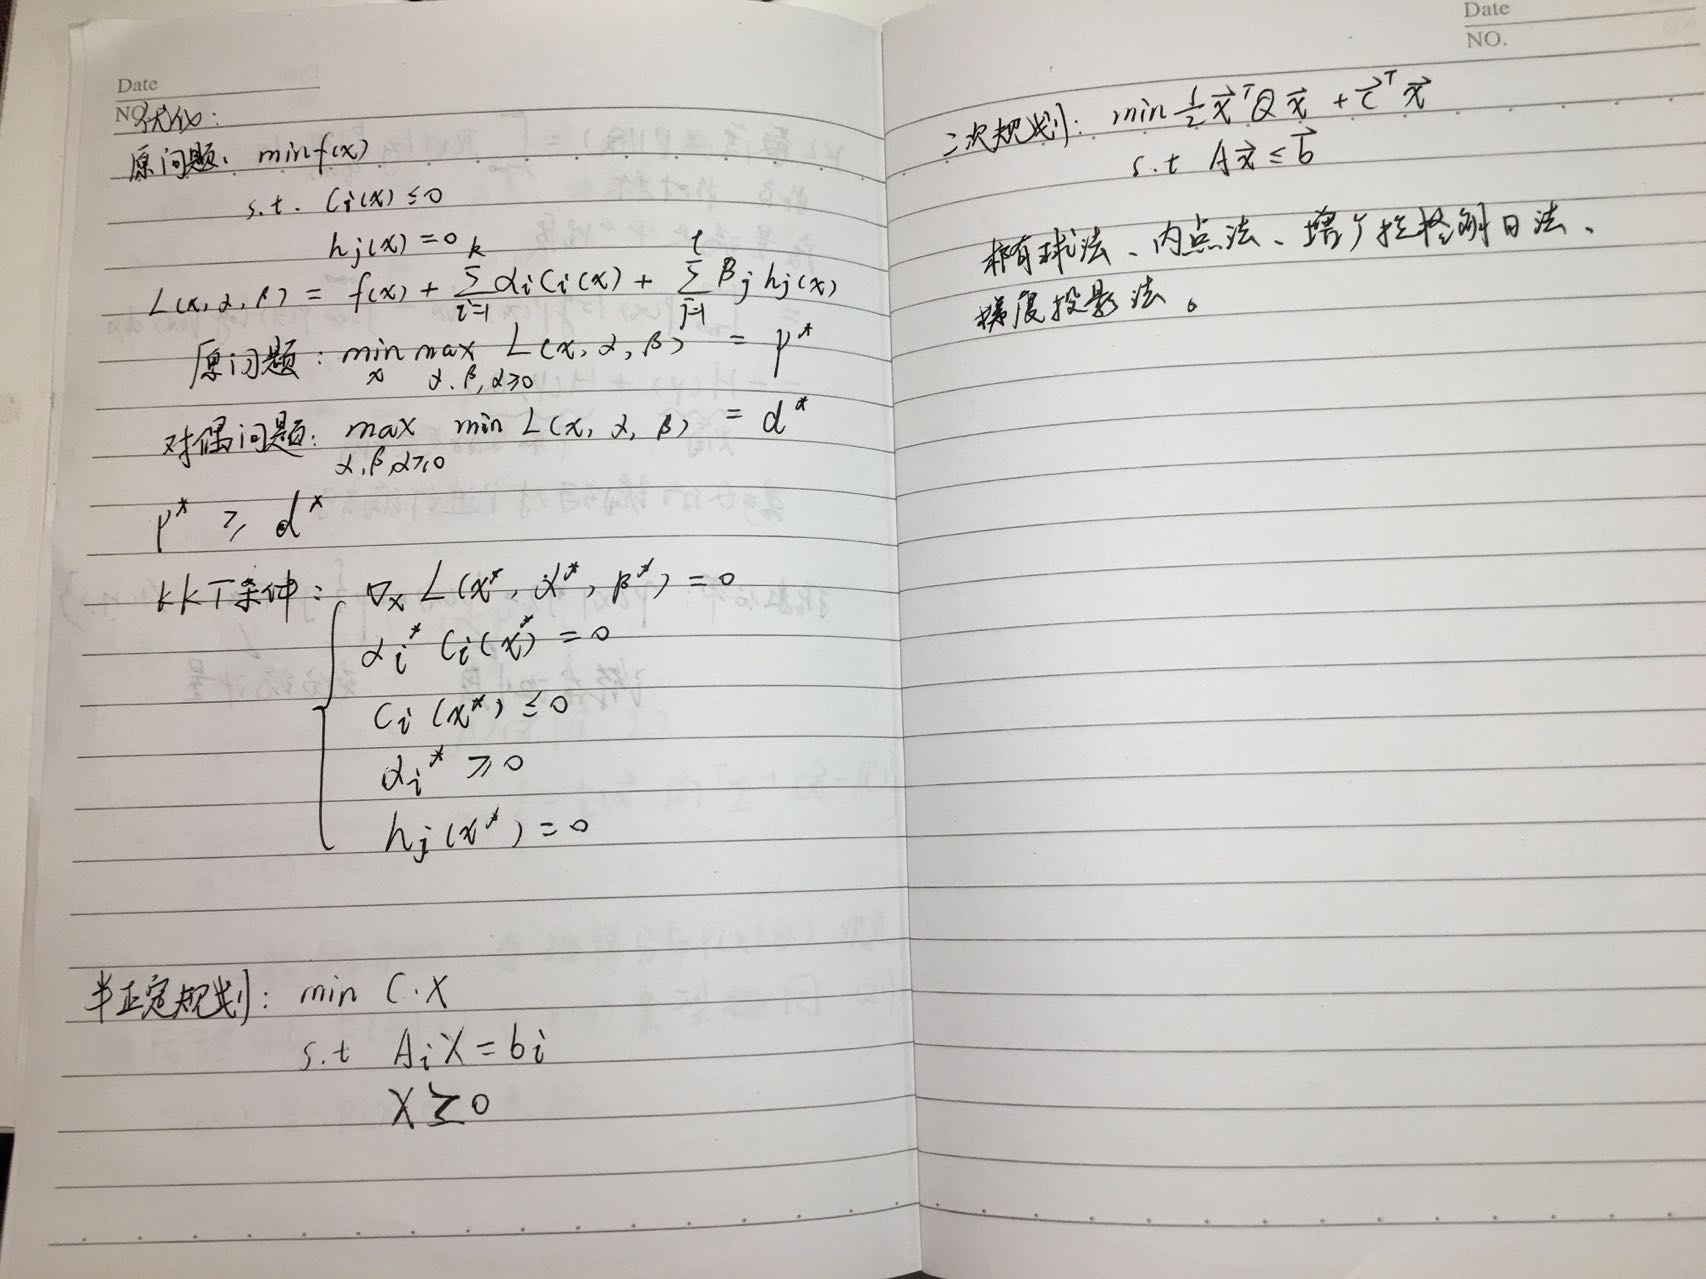 Date
NO.
对偶:
原问题: min f(x)
s.t. Ci(x) ≤ 0
hj(x) = 0
L(x, α, β) = f(x) + Σ_{i=1}^{k} αi Ci(x) + Σ_{j=1}^{l} βj hj(x)
原问题: min_x max_{α,β,α≥0} L(x, α, β) = p*
对偶问题: max_{α,β,α≥0} min_x L(x, α, β) = d*
p* ≥ d*
KKT条件: { ∇x L(x*, α*, β*) = 0
αi* Ci(x*) = 0
Ci(x*) ≤ 0
αi* ≥ 0
hj(x*) = 0
半正定规划: min C·X
s.t Ai·X = bi
X ⪰ 0
Date
NO.
二次规划: min ½ x⃗ᵀQx⃗ + c⃗ᵀx⃗
s.t Ax⃗ ≤ b⃗
椭球法、内点法、增广拉格朗日法、
梯度投影法。